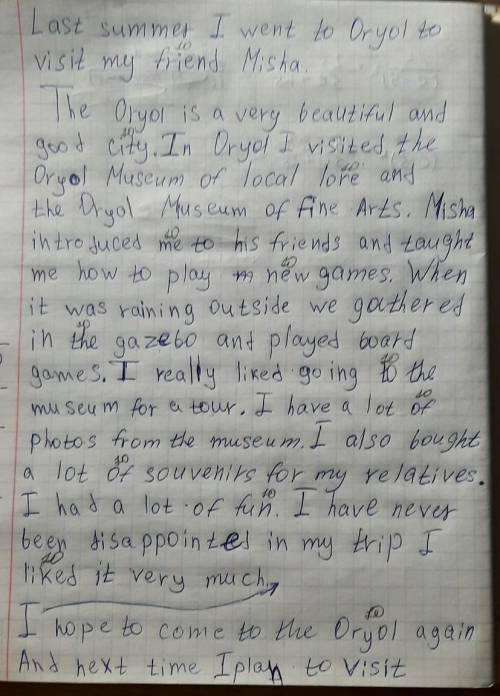 Last summer I went to Oryol to
10
visit my friend Misha.
The Oryol is a very beautiful and
10
good city. In Oryol I visited the
10
Oryol Museum of local lore and
the Oryol Museum of fine Arts. Misha
10
introduced me to his friends and taught
10
me how to play new games. When
it was raining outside we gathered
10
in the gazebo and played board
10
games. I really liked going to the
10
museum for a tour. I have a lot of
photos from the museum. I also bought
10
a lot of souvenirs for my relatives.
10
I had a lot of fun. I have never
been disappointed in my trip I
10
liked it very much.
10
I hope to come to the Oryol again
And next time I plan to visit